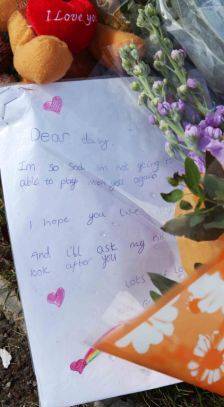 I Love you
Dear daisy.
Im so sad im not going
able to play with you again
I hope you
And i'll ask my
look after you
Lots